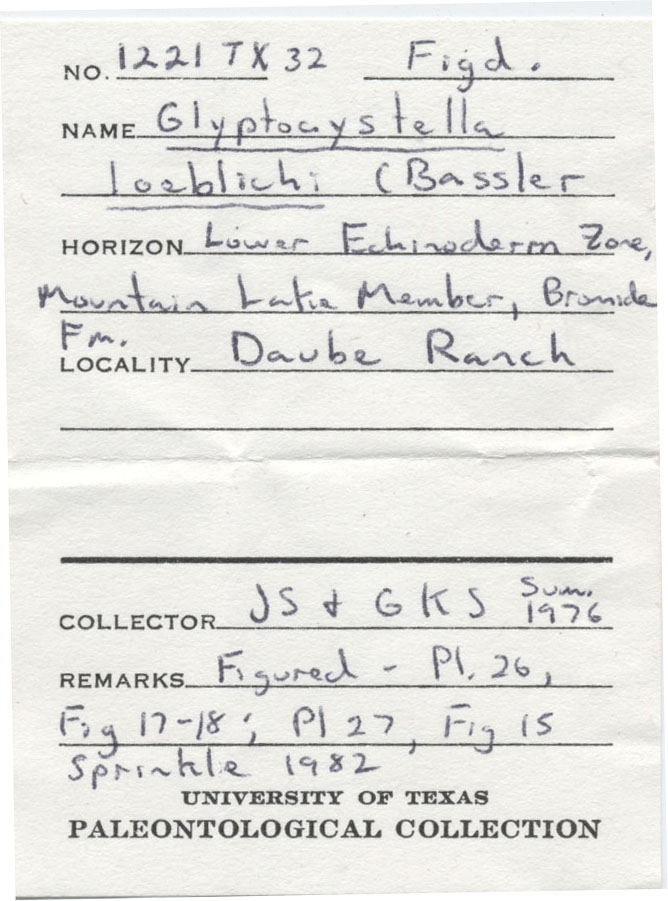 NO. 1221 TX 32 Figd.
NAME Glyptocystella
loeblichi (Bassler
HORIZON Lower Echinoderm Zone,
Mountain Lake Member, Bromide
Fm.
LOCALITY Daube Ranch
COLLECTOR JS + GKS Sum. 1976
REMARKS Figured - Pl. 26,
Fig 17-18; Pl 27, Fig 15
Sprinkle 1982
UNIVERSITY OF TEXAS
PALEONTOLOGICAL COLLECTION